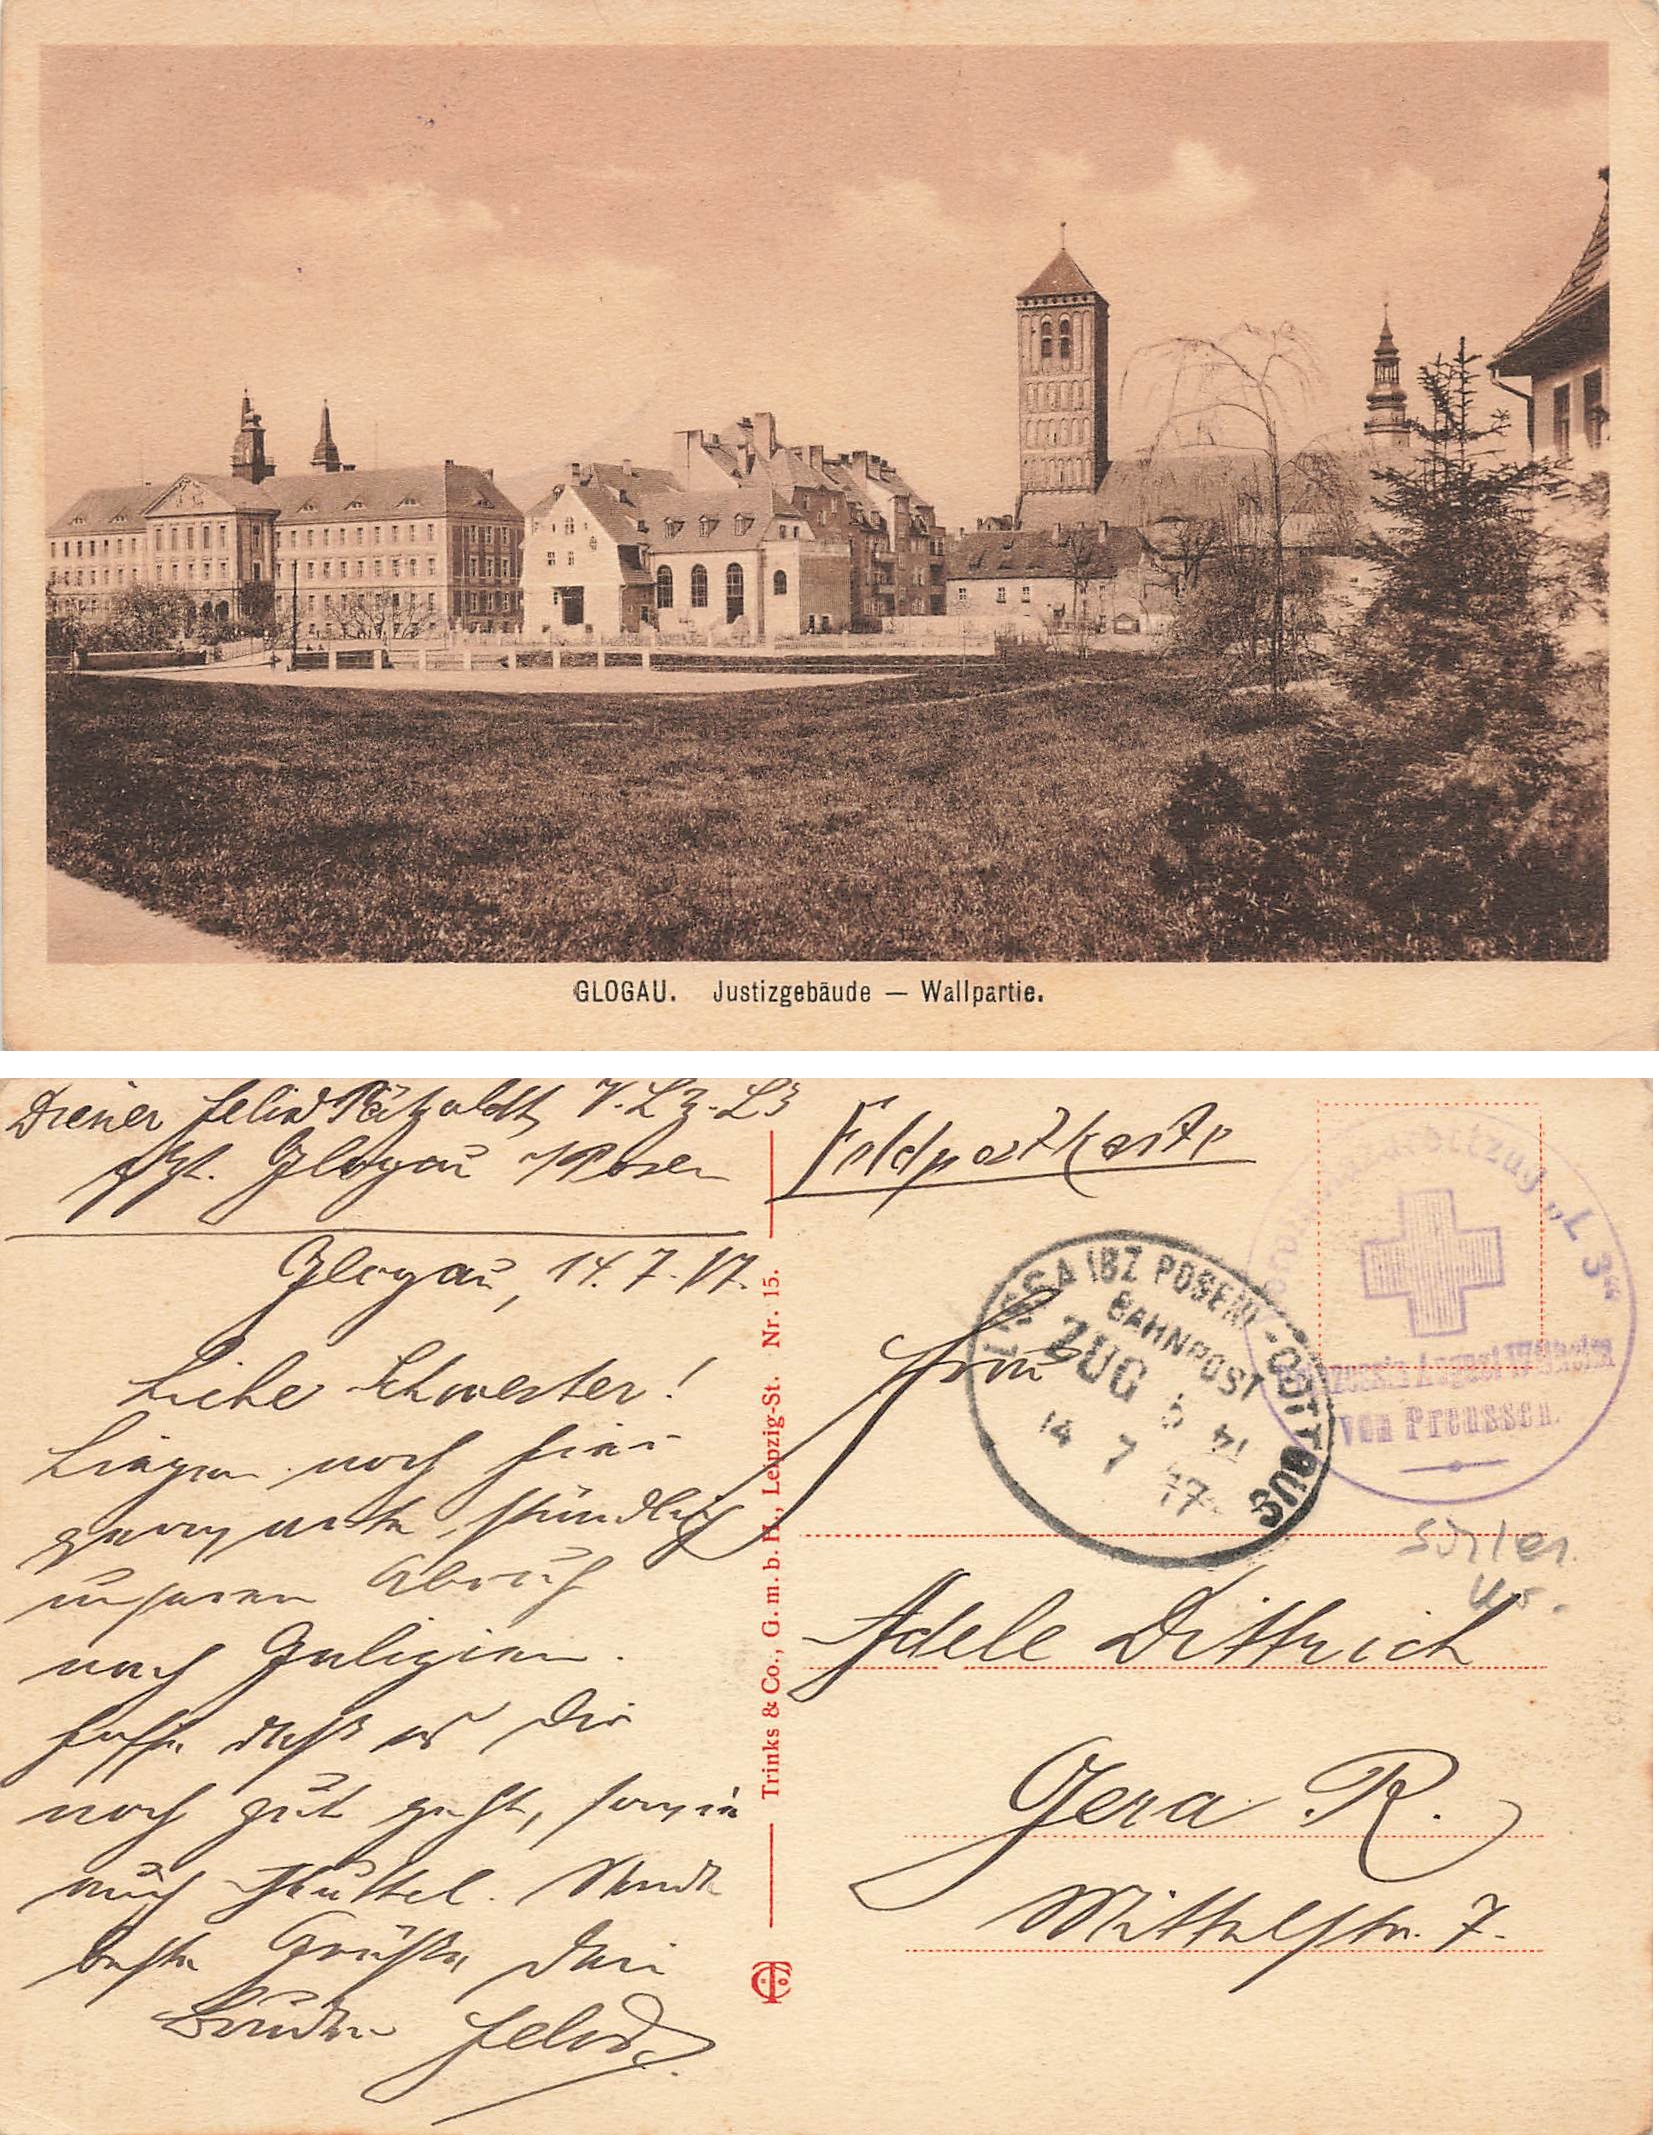 GLOGAU. Justizgebäude — Wallpartie.
Diener Felix Pätzoldt, V. L. Z. L3
Glogau / Posen
Glogau, 14. 7. 17.
Liebe Schwester!
Liegen noch hier
stündlich
unseren Abruf
nach Galizien.
Hoffe daß es Dir
noch gut geht, sowie
auch Küttel.
beste Grüße Dein
Bruder Felix.
Trinks & Co., G. m. b. H., Leipzig-St. Nr. 15.
Feldpostkarte
LISSA (BZ POSEN) - COTTBUS
BAHNPOST
ZUG 5
14 7 17
"L 3"
Prinzessin August Wilhelm
von Preussen.
Frau
Adele Dittrich
Gera R.
Mittelstr. 7.